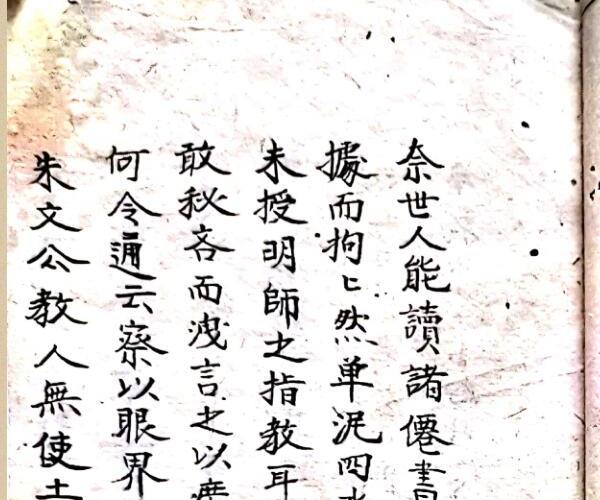 奈世人能讀諸僊書
據而拘〻然単泥四
未授明師之指教耳
敢秘吝而洩言之以
何令通云察以眼界
朱文公教人無使土